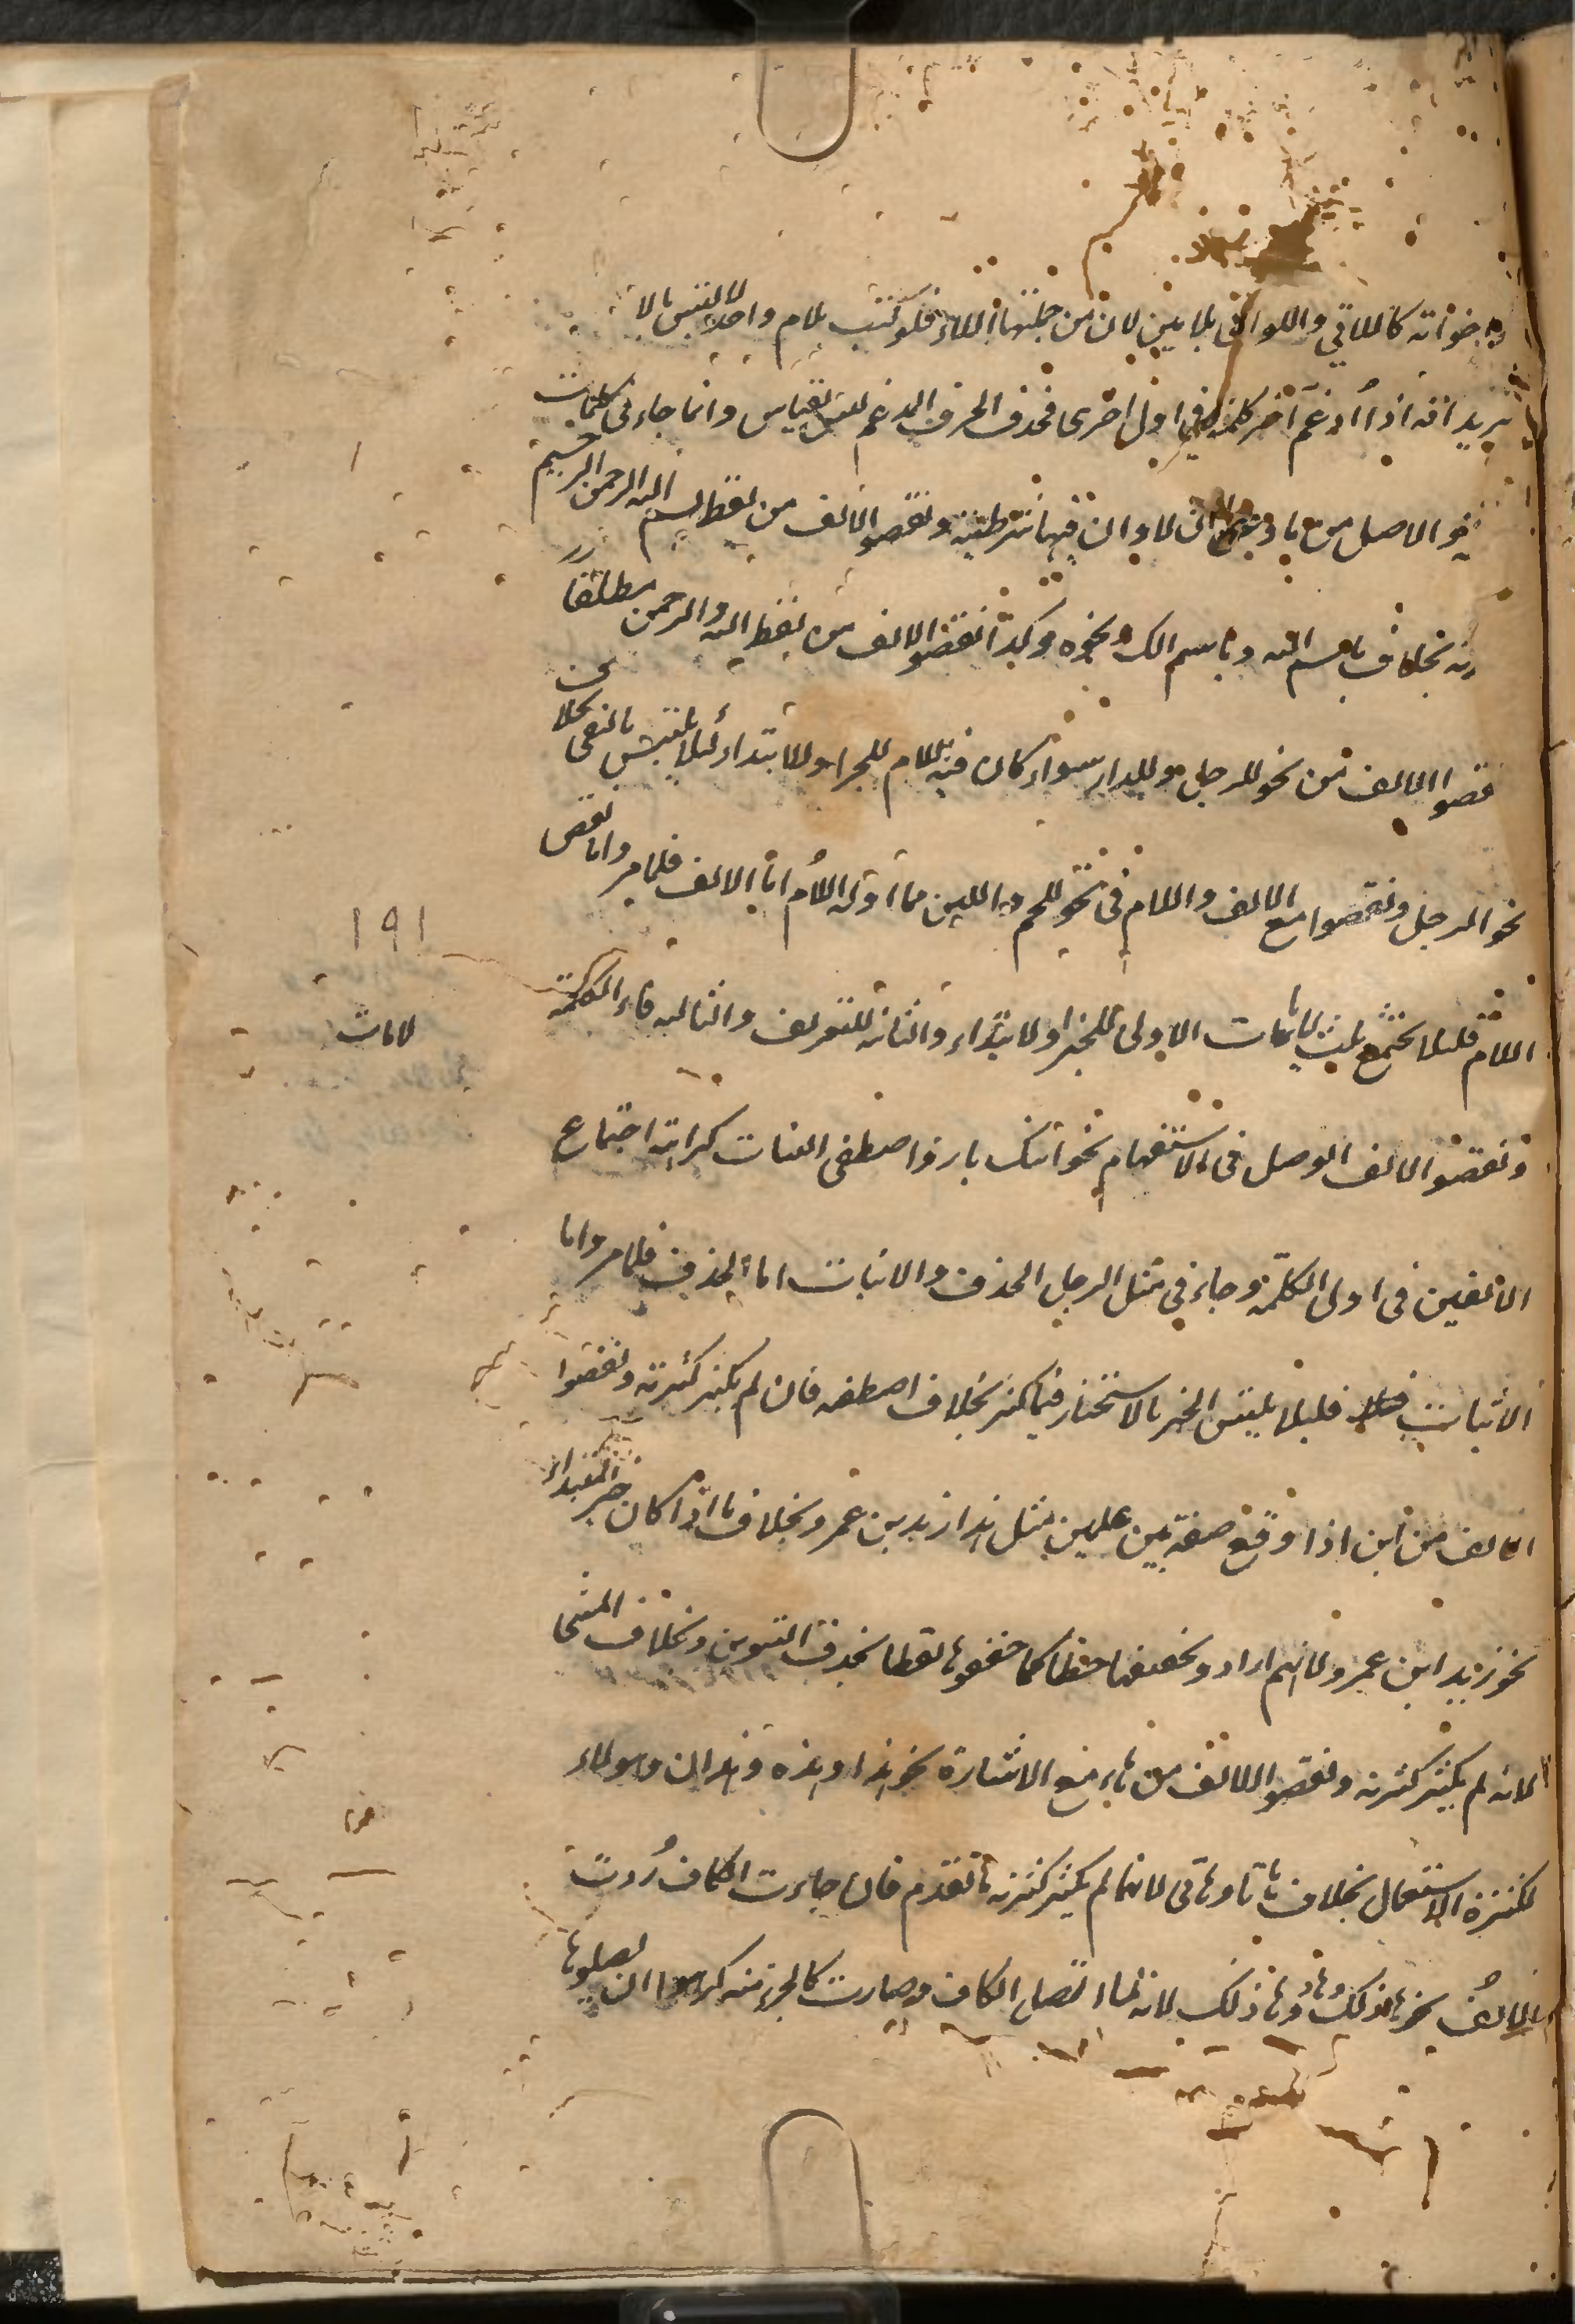 واخواته كاللاتي واللواتي بلامين لان من جملتها اللاء فلو كتب بلام واحد لالتبس بالا
يريد انه اذا ادغم اخر كلمة في اول اخرى فحذف الحرف المدغم ليس بقياس وانما جاء في كلمات
الاصل من ما وان لا وان فيها شرطية ونقصوا الالف من لفظ بسم الله الرحمن الرحيم
بخلاف باسم الله وباسم الله ونحوه وكذا نقصوا الالف من لفظ الله والرحمن مطلقا
نقصوا الالف من نحو للرجل وللدار سواء كان فيه اللام للجر او للابتداء لئلا يلتبس بالنفي بخلاف
نحو الرجل ونقصوا مع الالف واللام في نحو للحم وللبن مما اوله اللام اما الالف فلما مر واما نقص
اللام فلئلا يجتمع ثلث لامات الاولى للجر او للابتداء والثانية للتعريف والثالثة فاء الكلمة
ونقصوا الالف الوصل في الاستفهام نحو ابنك بار واصطفى البنات كراهة اجتماع
الالفين في اول الكلمة وجاء في مثل الرجل الحذف والاثبات اما الحذف فلما مر واما
الاثبات فلئلا يلتبس الخبر بالاستخبار فيما كثر بخلاف اصطفى فان لم يكثر كثرته ونقصوا
الالف من ابن اذا وقع صفة بين علمين مثل هذا زيد بن عمرو بخلاف ما اذا كان خبر المبتداء
نحو زيد ابن عمرو لانهم ارادوا تخفيفها خطا كما خففوها لفظا بحذف التنوين وبخلاف المثنى
لانه لم يكثر كثرته ونقصوا الالف من هاء مع الاشارة نحو هذا وهذه وهذان وهولاء
لكثرة الاستعمال بخلاف هاتا وهاتي لانهما لم يكثر كثرته ما تقدم فان جاءت الكاف ردت
الالف نحو هاذلك وهاذاك لانه لما اتصل الكاف وصارت كالجزء منه كرهوا ان يصلوها
١٩١
لامات